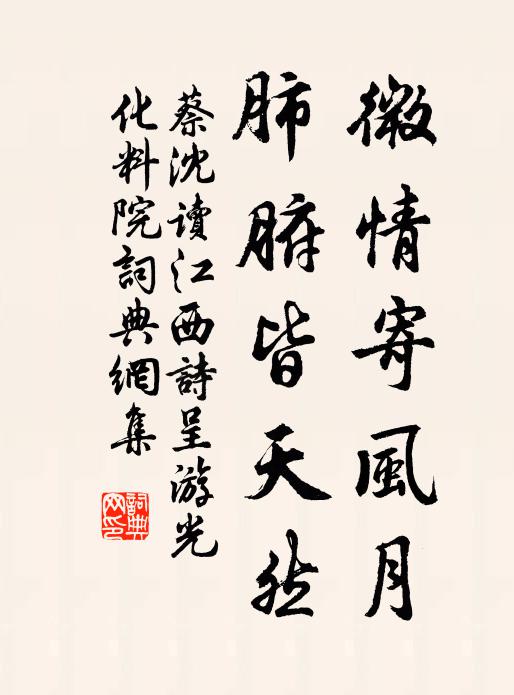 微情寄風月
肺腑皆天然
蔡沈讀江西詩呈游光
化料院詞典網集
詞典
网印